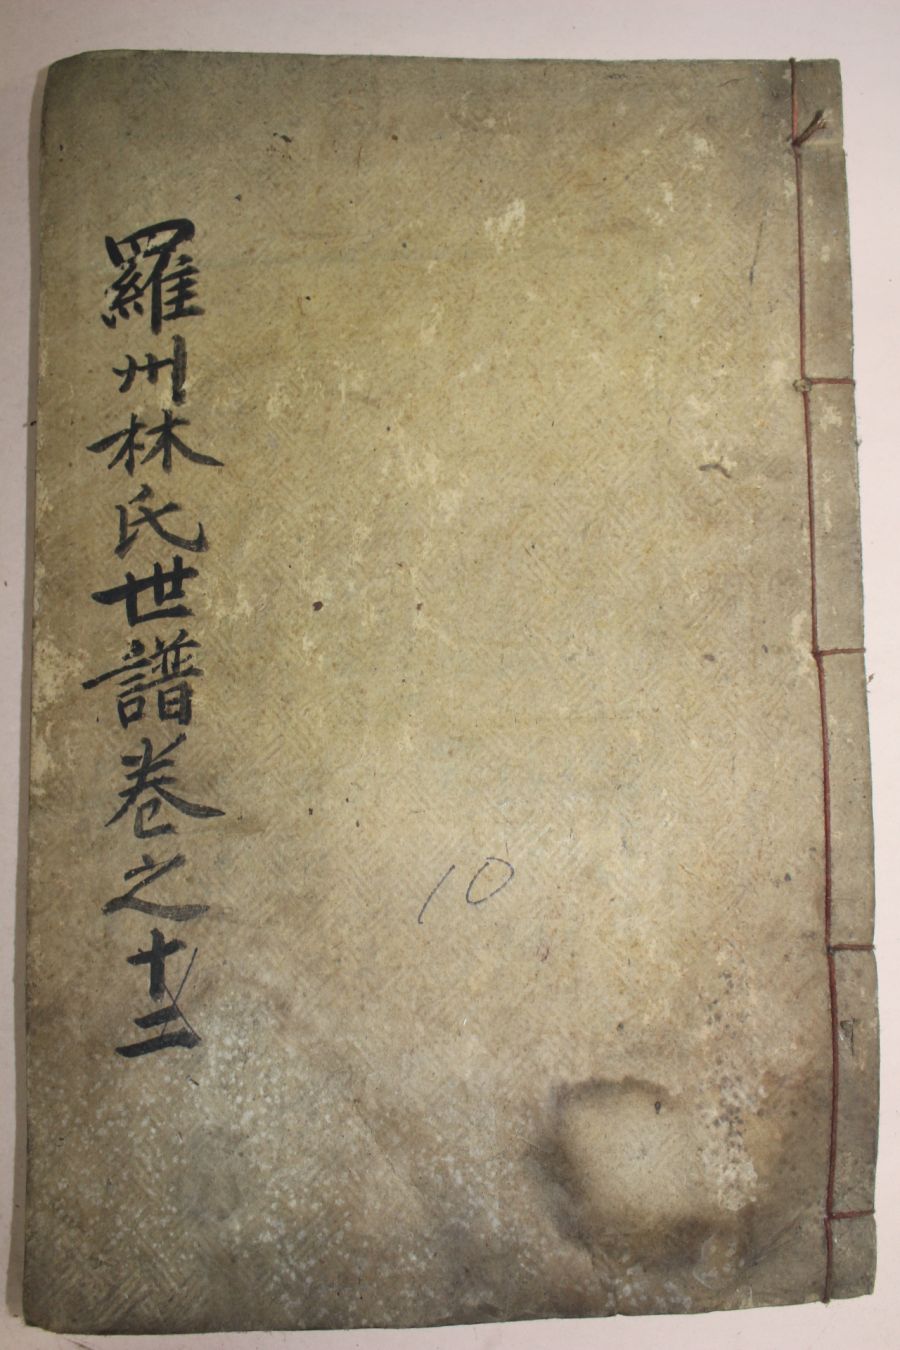 羅州林氏世譜卷之十二
10